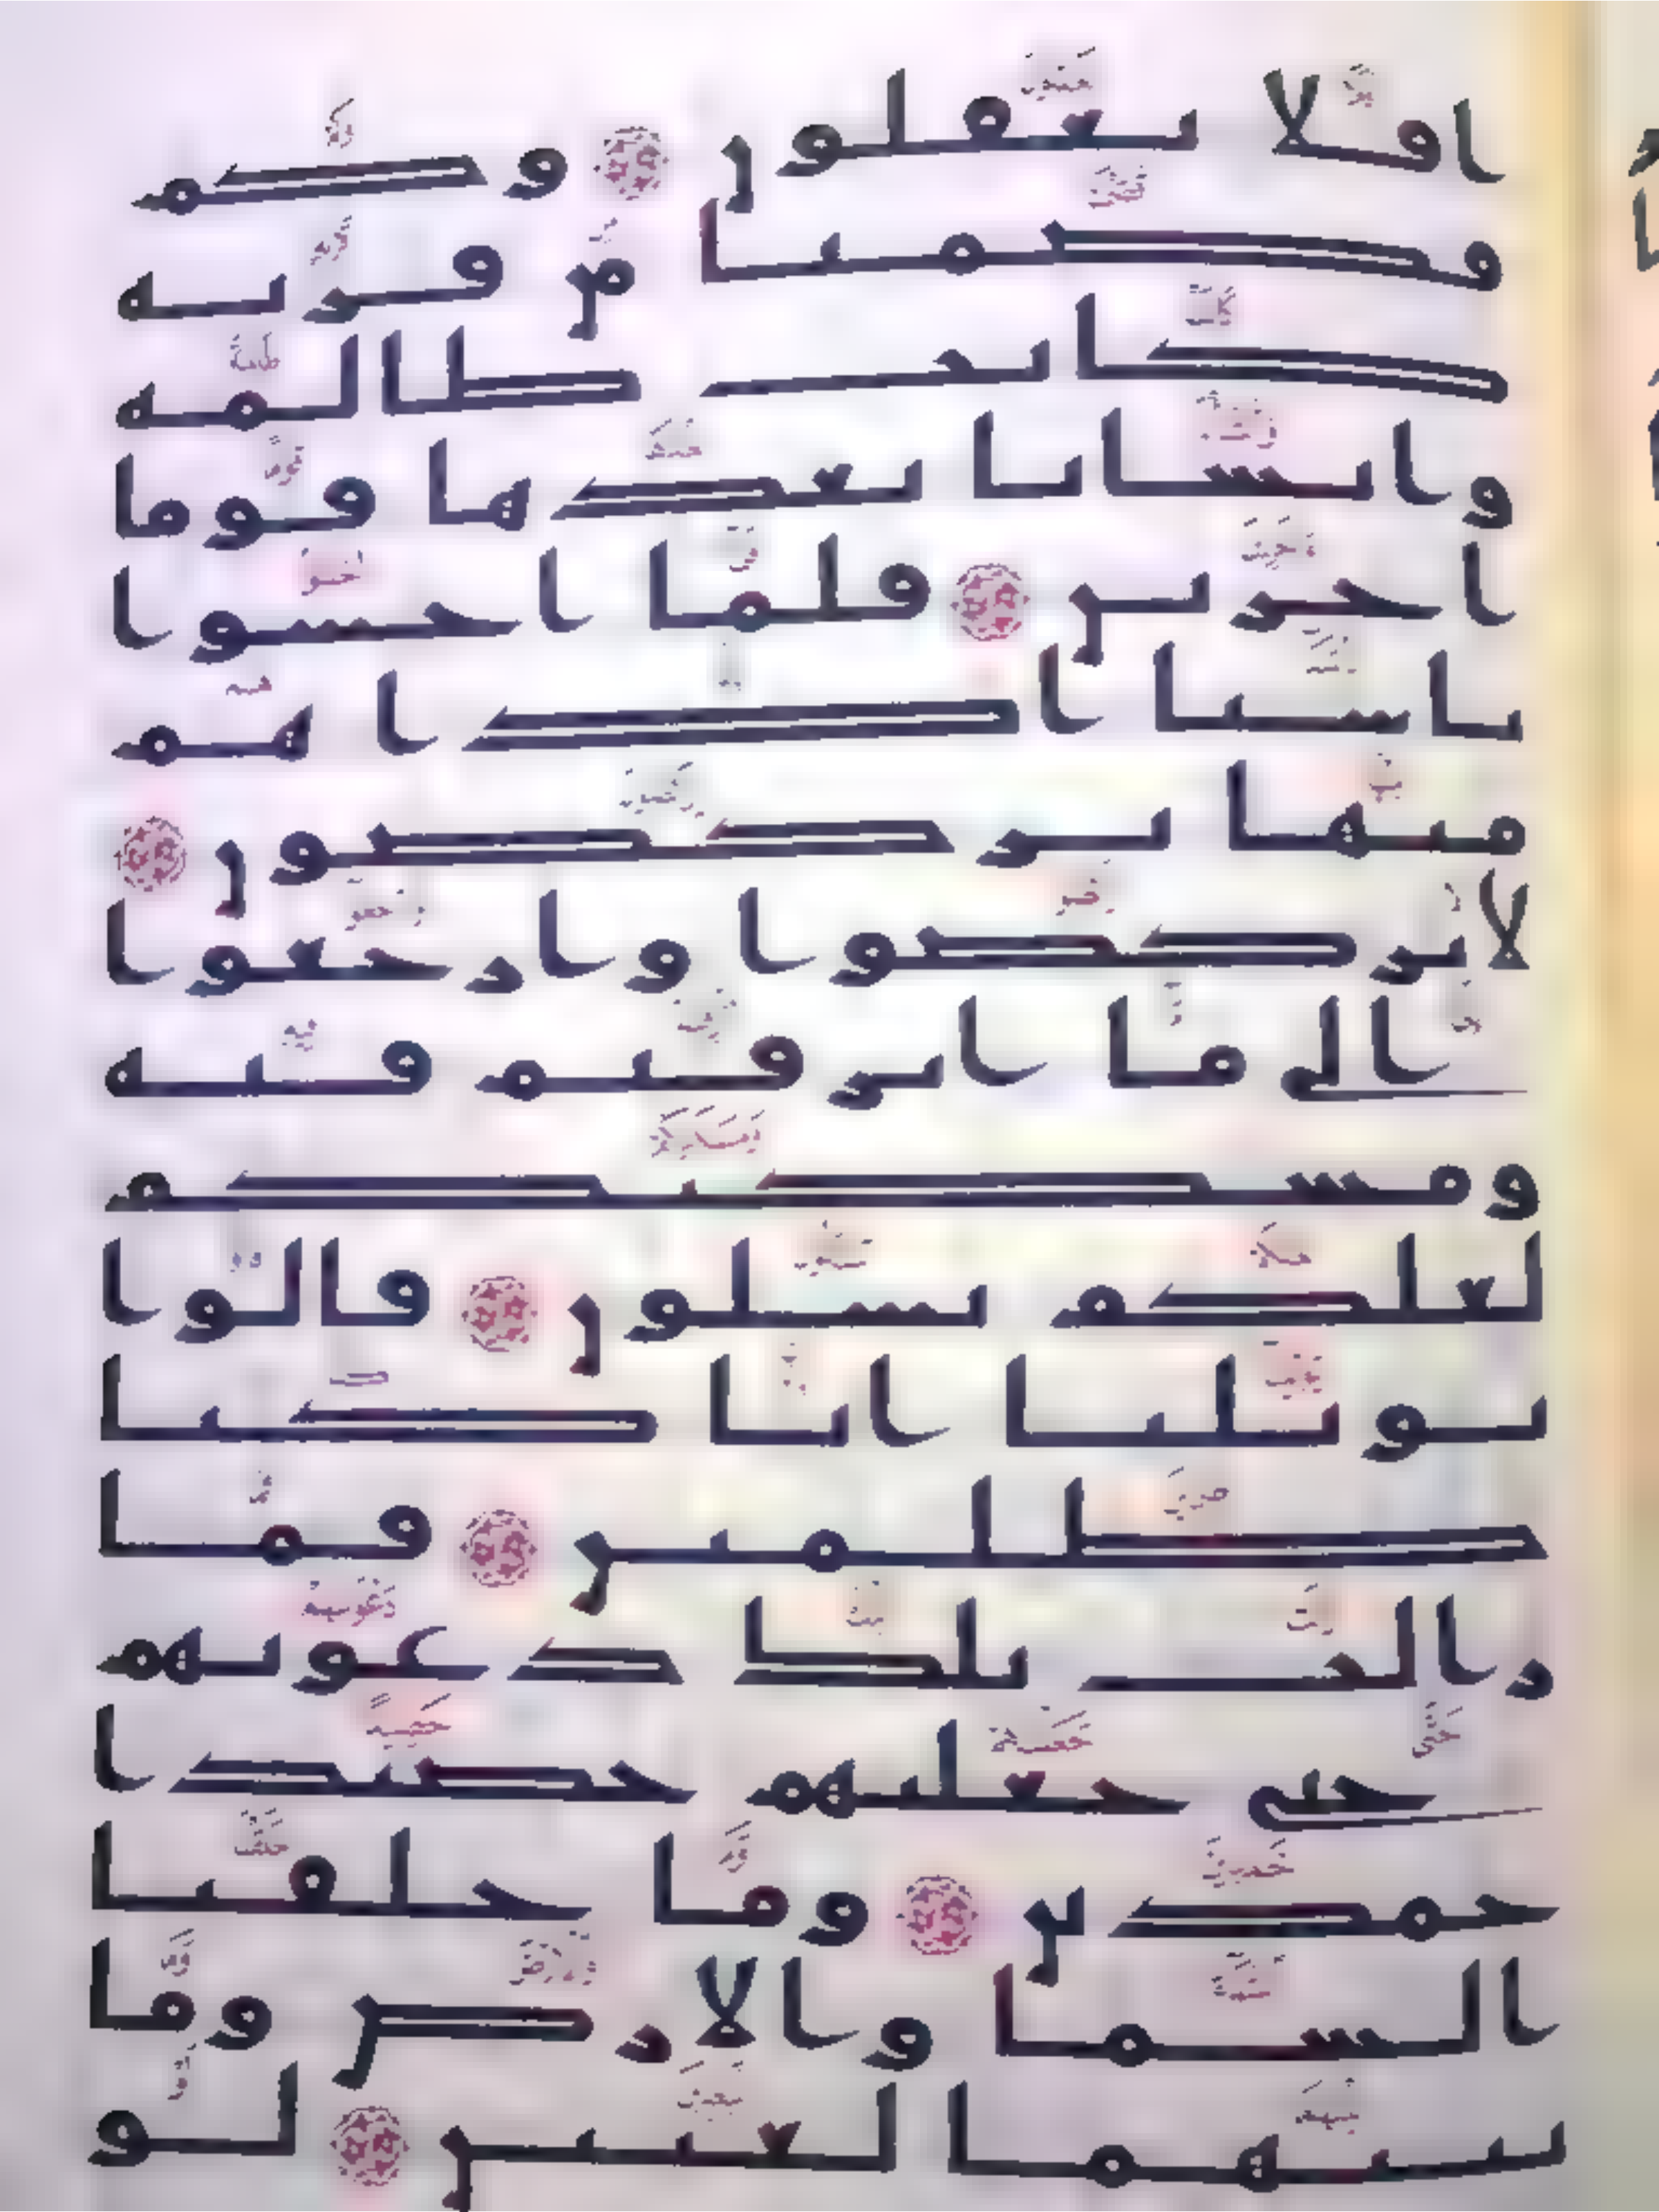 افلا تعقلون وكم
قصمنا من قرية
كانت ظالمة
وانشانا بعدها قوما
اخرين فلما احسوا
باسنا اذا هم
منها يركضون
لا تركضوا وارجعوا
الى ما اترفتم فيه
ومسكنكم
لعلكم تسلون قالوا
يويلنا انا كنا
ظلمين فما
زالت تلك دعويهم
حتى جعلنهم حصيدا
خمدين وما خلقنا
السما والارض وما
بينهما لعبين لو